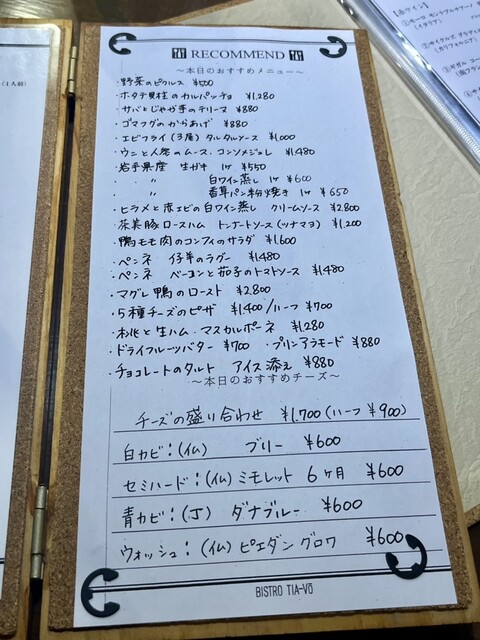 RECOMMEND
～本日のおすすめメニュー～
・野菜のピクルス ¥500
・ホタテ貝柱のカルパッチョ ¥1,280
・サバとじゃが芋のテリーヌ ¥880
・ゴマフグのからあげ ¥880
・エビフライ(3尾) タルタルソース ¥1,000
・ウニと人参のムース、コンソメジュレ ¥1,480
・岩手県産 生ガキ 1ケ ¥550
〃 〃 白ワイン蒸し 1ケ ¥600
〃 〃 香草パン粉焼き 1ケ ¥650
・ヒラメと赤エビの白ワイン蒸し クリームソース ¥2,800
・茶美豚ロースハム トンナートソース(ツナマヨ) ¥1,200
・鴨モモ肉のコンフィのサラダ ¥1,600
・ペンネ 仔羊のラグー ¥1,480
・ペンネ ベーコンと茄子のトマトソース ¥1,480
・マグレ鴨のロースト ¥2,800
・5種チーズのピザ ¥1,400/ハーフ ¥700
・桃と生ハム・マスカルポーネ ¥1,280
・ドライフルーツバター ¥700 ・プリンアラモード ¥880
・チョコレートのタルト アイス添え ¥880
～本日のおすすめチーズ～
チーズの盛り合わせ ¥1,700(ハーフ ¥900)
白カビ:(仏) ブリー ¥600
セミハード:(仏)ミモレット 6ヶ月 ¥600
青カビ:(丁) ダナブルー ¥600
ウォッシュ:(仏)ピエダングロワ ¥600
BISTRO TIA-VO
(1人前)